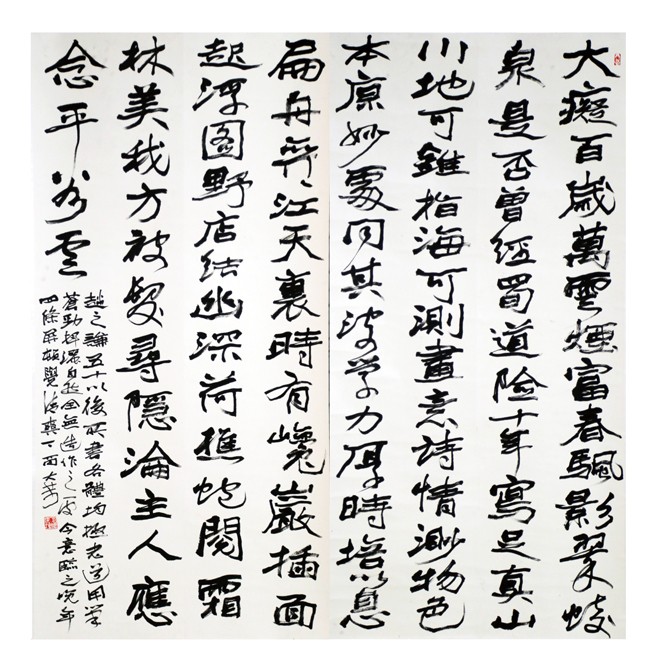 大癡百歲萬雲煙富春飄影翠蛟
泉是否曾經蜀道險十年寫足真山
川地可錐指海可測畫意詩情渺物色
本原妙處同其深學力厚時培以息
扁舟江天裏時有巉巖插面
起浮圖野店結幽深荷樵蛇閱霜
林美我方被髮尋隱淪主人應
念平
趙之謙五十以後所書各體均極老道用筆
蒼勁揮灑自然全無造作之今意臨之晚年
四條屏頗覺丁酉